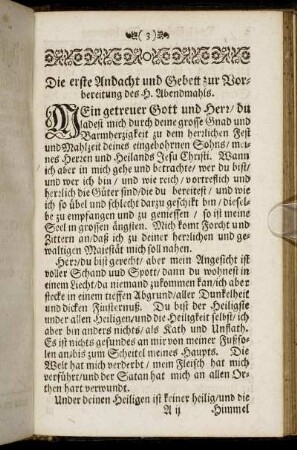 ( 3 )
Die erste Andacht und Gebett zur Vor-
bereitung des H. Abendmahls.
MEin getreuer Gott und Herr/ du
ladest mich durch deine grosse Gnad und
Barmherzigkeit zu dem herrlichen Fest
und Mahlzeit deines eingebohrnen Sohns/ mei-
nes Herren und Heilands Jesu Christi. Wann
ich aber in mich gehe und betrachte/ wer du bist/
und wer ich bin/ und wie reich/ vortreflich und
herrlich die Güter sind/ die du bereitest/ und wie
ich so übel und schlecht darzu geschikt bin/ diesel-
be zu empfangen und zu geniessen/ so ist meine
Seel in grossen ängsten. Mich komt Forcht und
Zittern an/ daß ich zu deiner herrlichen und ge-
waltigen Majestät mich soll nahen.
Herr/ du bist gerecht/ aber mein Angesicht ist
voller Schand uud Spott/ dann du wohnest in
einem Liecht/ da niemand zukommen kan/ ich aber
stecke in einem tieffen Abgrund/ aller Dunkelheit
und dicken Finsternuß. Du bist der Heiligste
under allen Heiligen/ und die Heiligkeit selbst/ ich
aber bin anders nichts/ als Kath und Unflath.
Es ist nichts gesundes an mir von meiner Fußso-
len an/ bis zum Scheitel meines Haupts. Die
Welt hat mich verderbt/ mein Fleisch hat mich
verführt/ und der Satan hat mich an allen Or-
then hart verwundt.
Under deinen Heiligen ist keiner heilig/ und die
A ij Himmel